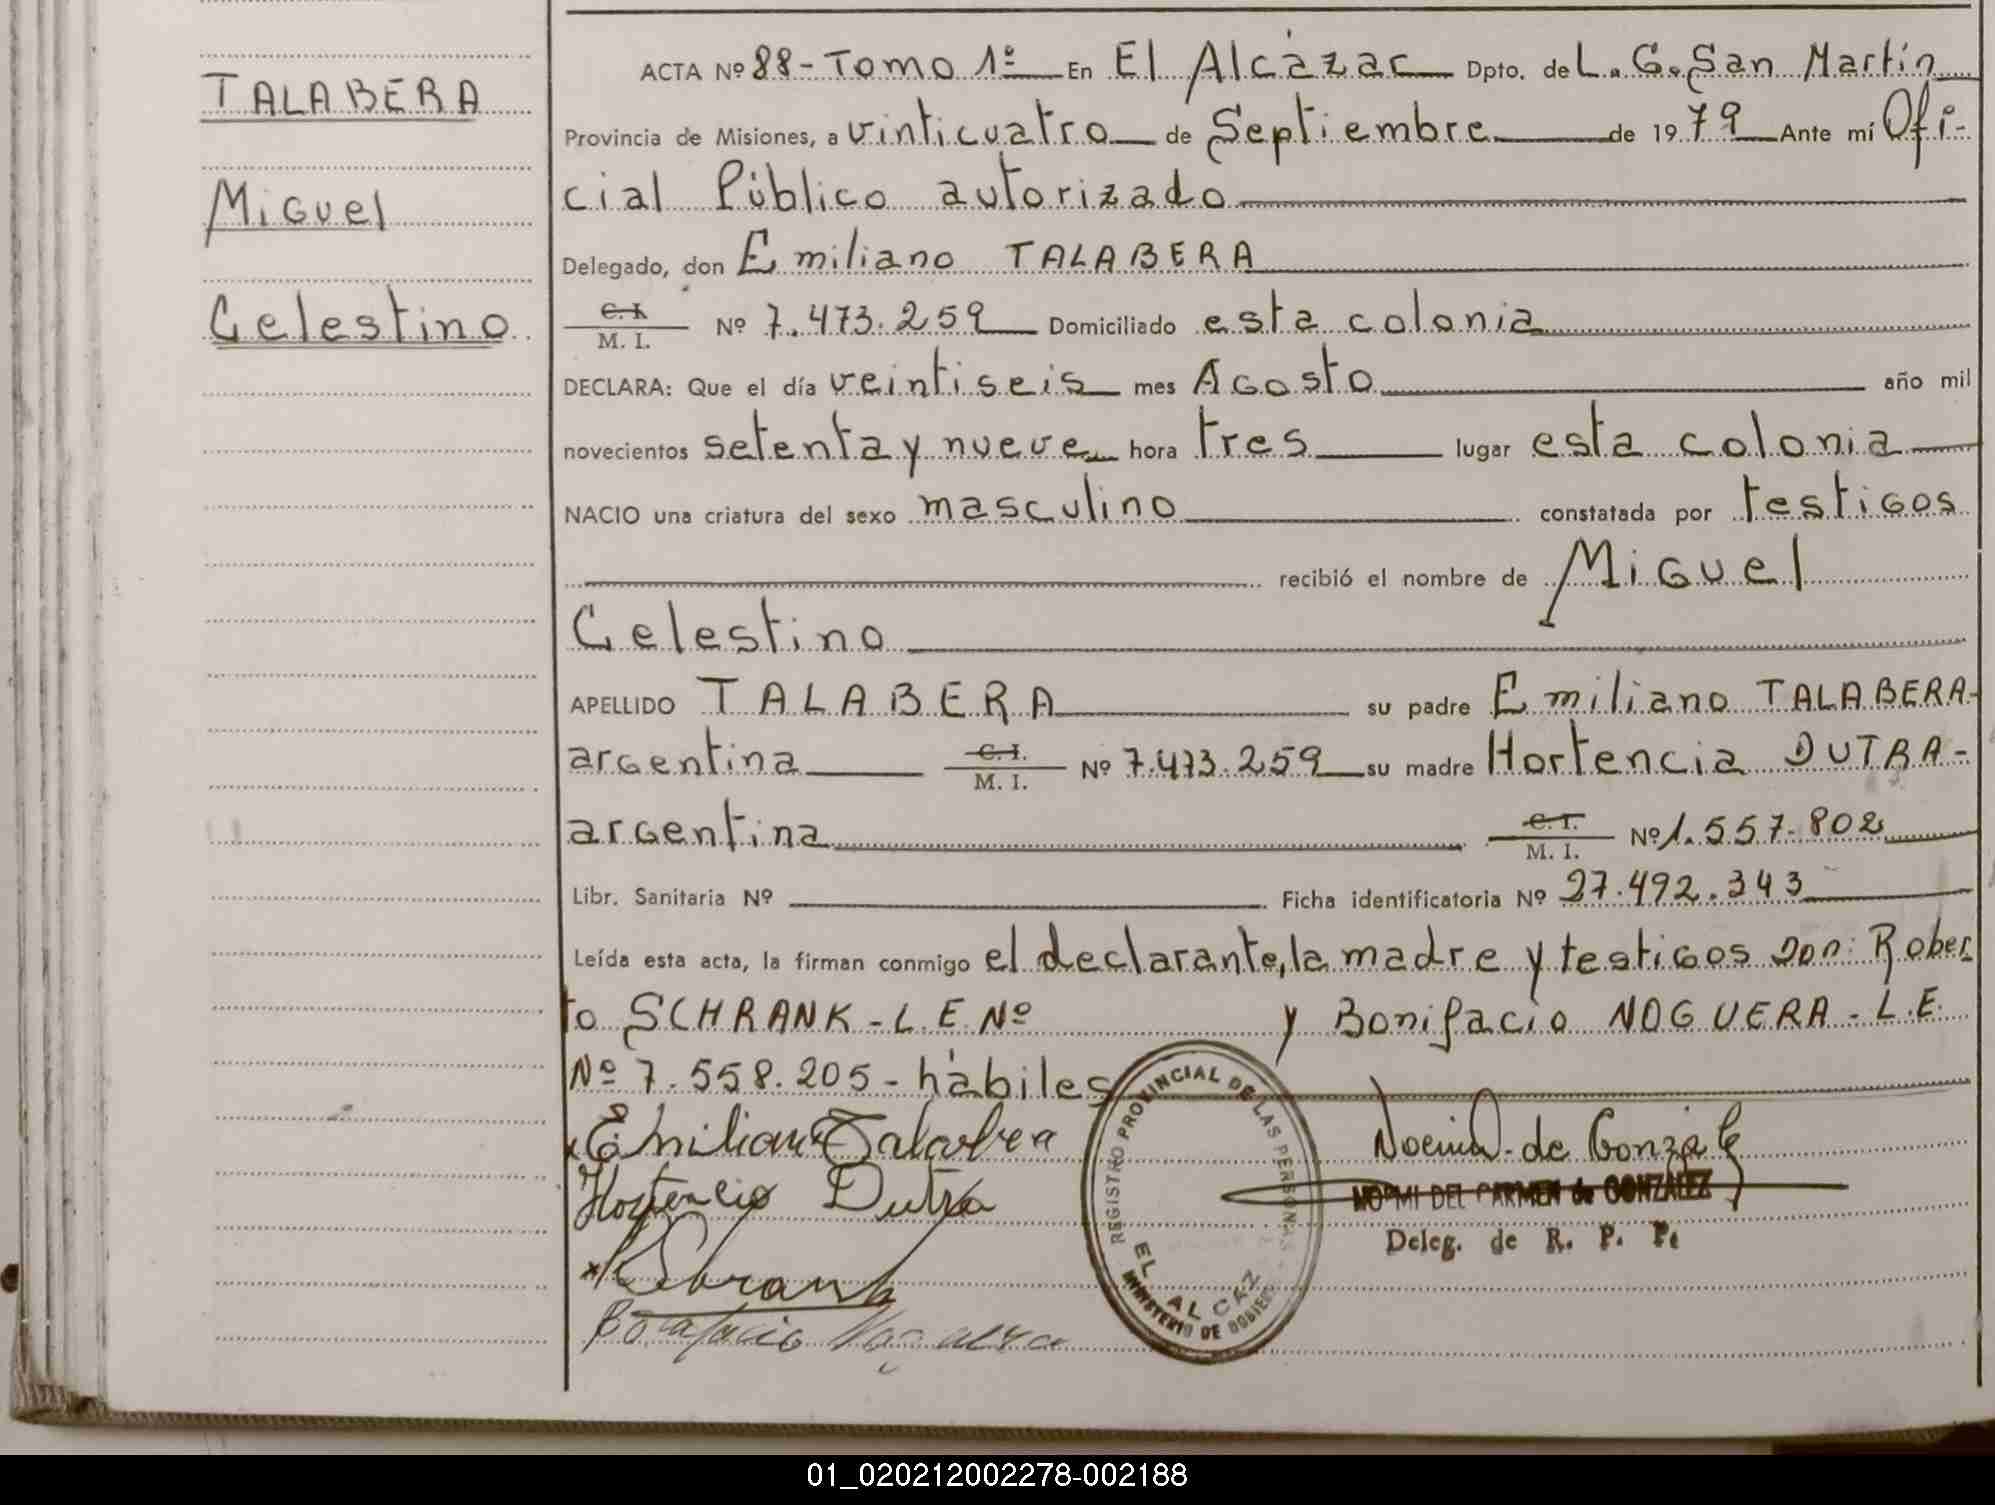 TALABERA
Miguel
Celestino
ACTA Nº 88-Tomo 1º En El Alcázar Dpto. de L. G. San Martín
Provincia de Misiones, a vinticuatro de Septiembre de 1979 Ante mí Ofi-
cial Público autorizado
Delegado, don Emiliano TALABERA
C. I. M. I. Nº 7.473.259 Domiciliado esta colonia
DECLARA: Que el día veintiseis mes Agosto año mil
novecientos setenta y nueve hora tres lugar esta colonia
NACIO una criatura del sexo masculino constatada por testigos
recibió el nombre de Miguel
Celestino
APELLIDO TALABERA su padre Emiliano TALABERA-
argentina C. I. M. I. Nº 7.473.259 su madre Hortencia DUTRA-
argentina C. I. M. I. Nº 1.557.802
Libr. Sanitaria Nº Ficha identificatoria Nº 27.492.343
Leída esta acta, la firman conmigo el declarante, la madre y testigos Don: Rober
to SCHRANK - L.E. Nº y Bonifacio NOGUERA - L.E.
Nº 7.558.205 - hábiles
Emiliano Talabera
Hortencia Dutra
Bonifacio
Noemi de Gonzalez
NOEMI DEL CARMEN de GONZALEZ
Deleg. de R. P. P.
REGISTRO PROVINCIAL DE LAS PERSONAS
EL ALCAZ
MINISTERIO DE GOBIE
01_020212002278-002188